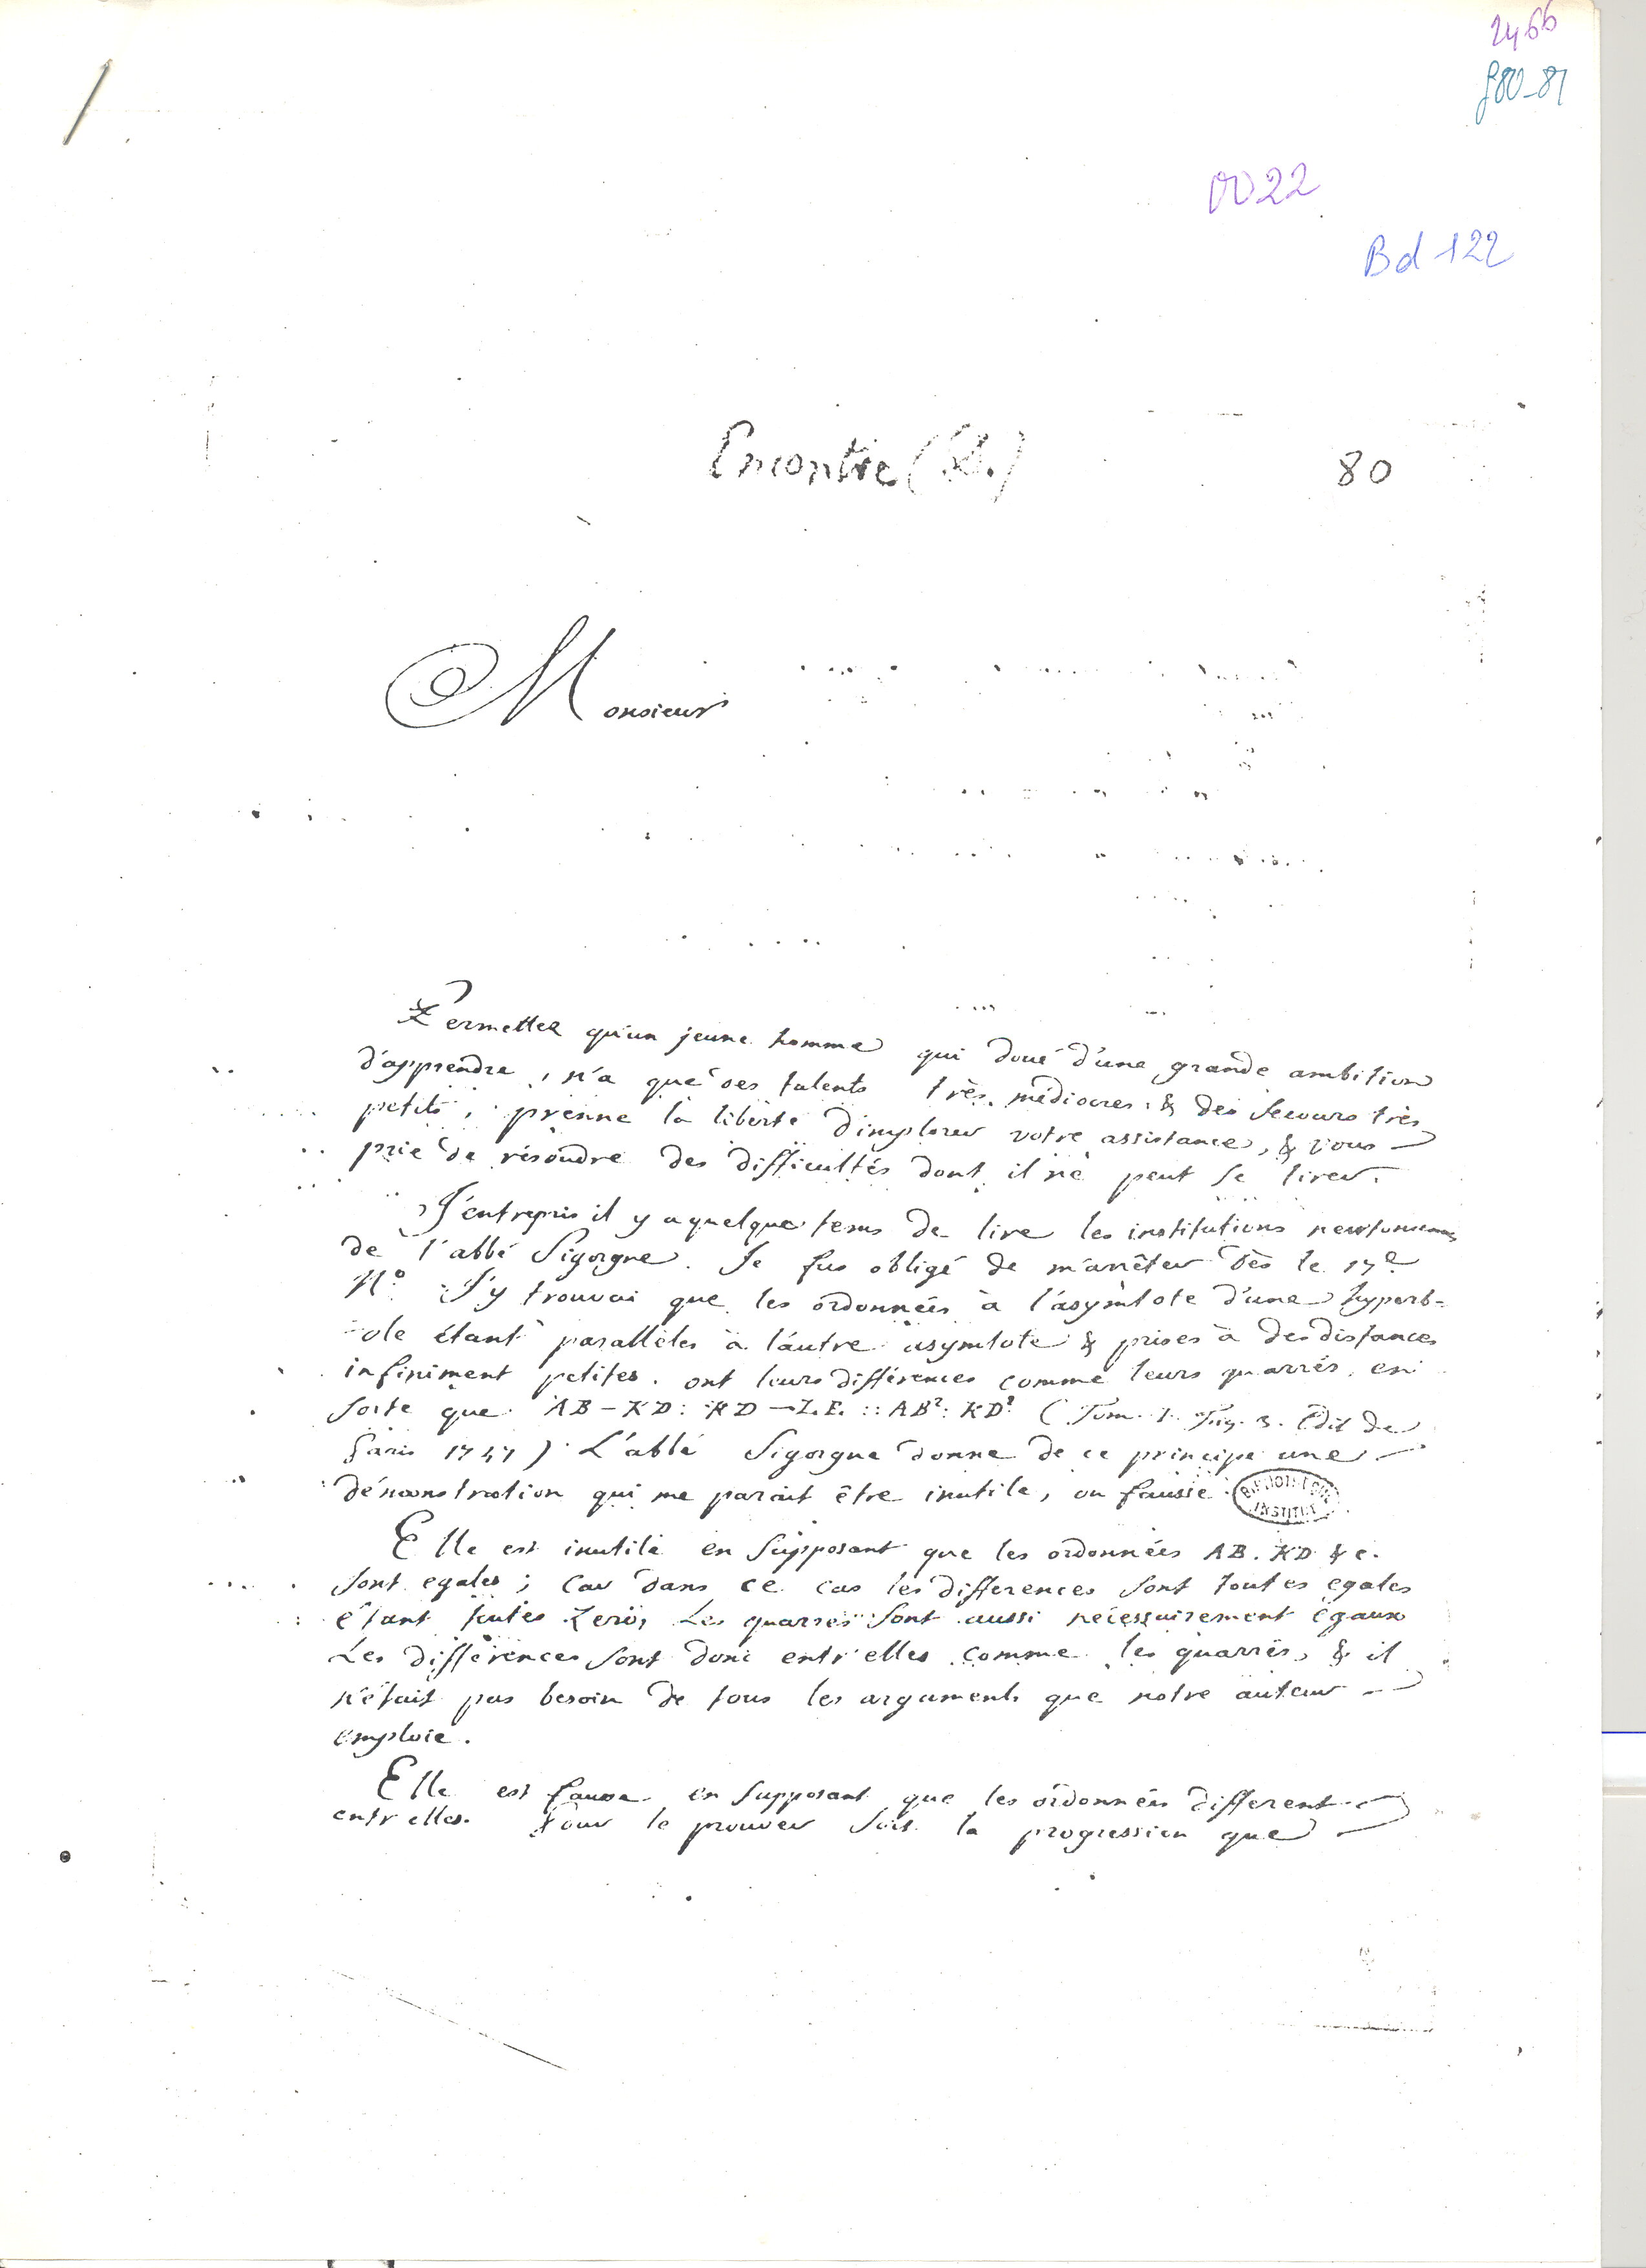 2466
f80-81
0022
Bd 122
Encontre (D.)
80
Monsieur
Permettez qu'un jeune homme qui doué d'une grande ambition
d'apprendre, n'a que des talents très médiocres & des secours très
petits, prenne la liberté d'implorer votre assistance, & vous
prie de résoudre des difficultés dont il ne peut se tirer.
J'entrepris il y a quelque tems de lire les institutions newtoniennes
de l'abbé Sigorgne. Je fus obligé de m'arrêter dès le 17e
No. J'y trouvai que les ordonnées à l'asymtote d'une hyperb-
-ole étant parallèles à l'autre asymtote & prises à des distances
infiniment petites, ont leurs différences comme leurs quarrés, en
sorte que AB - KD : KD - LE :: AB² : KD² (Tom. 1. Fig. 3. Edit de
Paris 1747) L'abbé Sigorgne donne de ce principe une
démonstration qui me parait être inutile, ou fausse.
BIBLIOTHEQUE
INSTITUT
Elle est inutile en supposant que les ordonnées AB. KD &c.
sont egales; car dans ce cas les differences sont toutes egales
étant toutes zero, Les quarrés sont aussi nécessairement égaux
Les différences sont donc entr'elles comme les quarrés, & il
n'était pas besoin de tous les arguments que notre auteur
emploie.
Elle est fausse en supposant que les ordonnées different
entr'elles. Pour le prouver soit la progression que